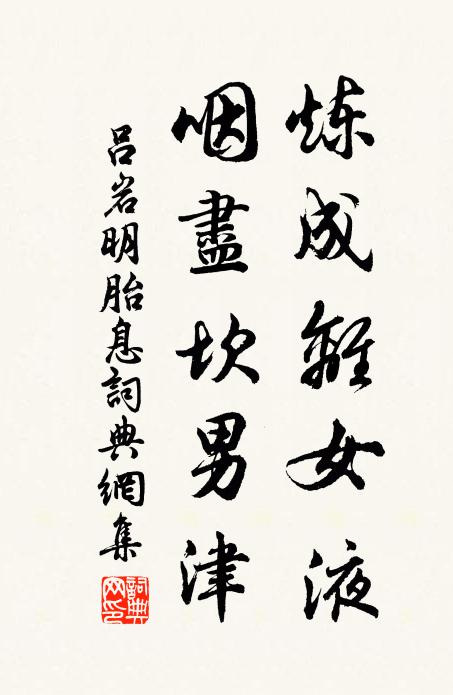 炼成離女液
咽盡坎男津
吕岩明胎息詞典網集
詞典網印